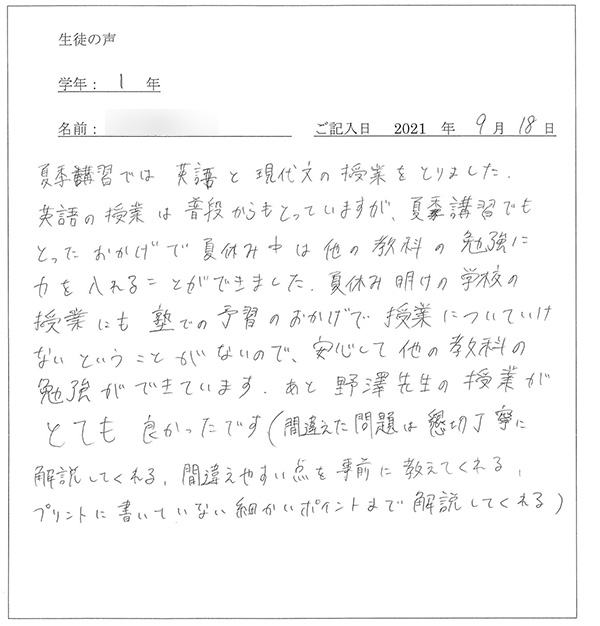 生徒の声
学年： 1 年
名前： ご記入日 2021 年 9 月 18 日
夏季講習では 英語 と 現代文の 授業 を とりました．
英語の 授業 は 普段 からもとっていますが、夏季講習でも
とった おかげ で 夏休み 中 は 他 の 教科 の 勉強 に
力を 入れる ことができました．夏休み 明けの 学校の
授業 にも 塾での 予習 のおかげで 授業 についていけ
ない という こと が ないので、安心して 他 の 教科の
勉強 ができています．あと 野澤 先生 の 授業 が
とても 良かったです（間違えた 問題 は 懇切丁寧に
解説してくれる，間違えやすい 点を 事前 に 教えてくれる，
プリントに 書いていない 細かいポイントまで 解説してくれる）